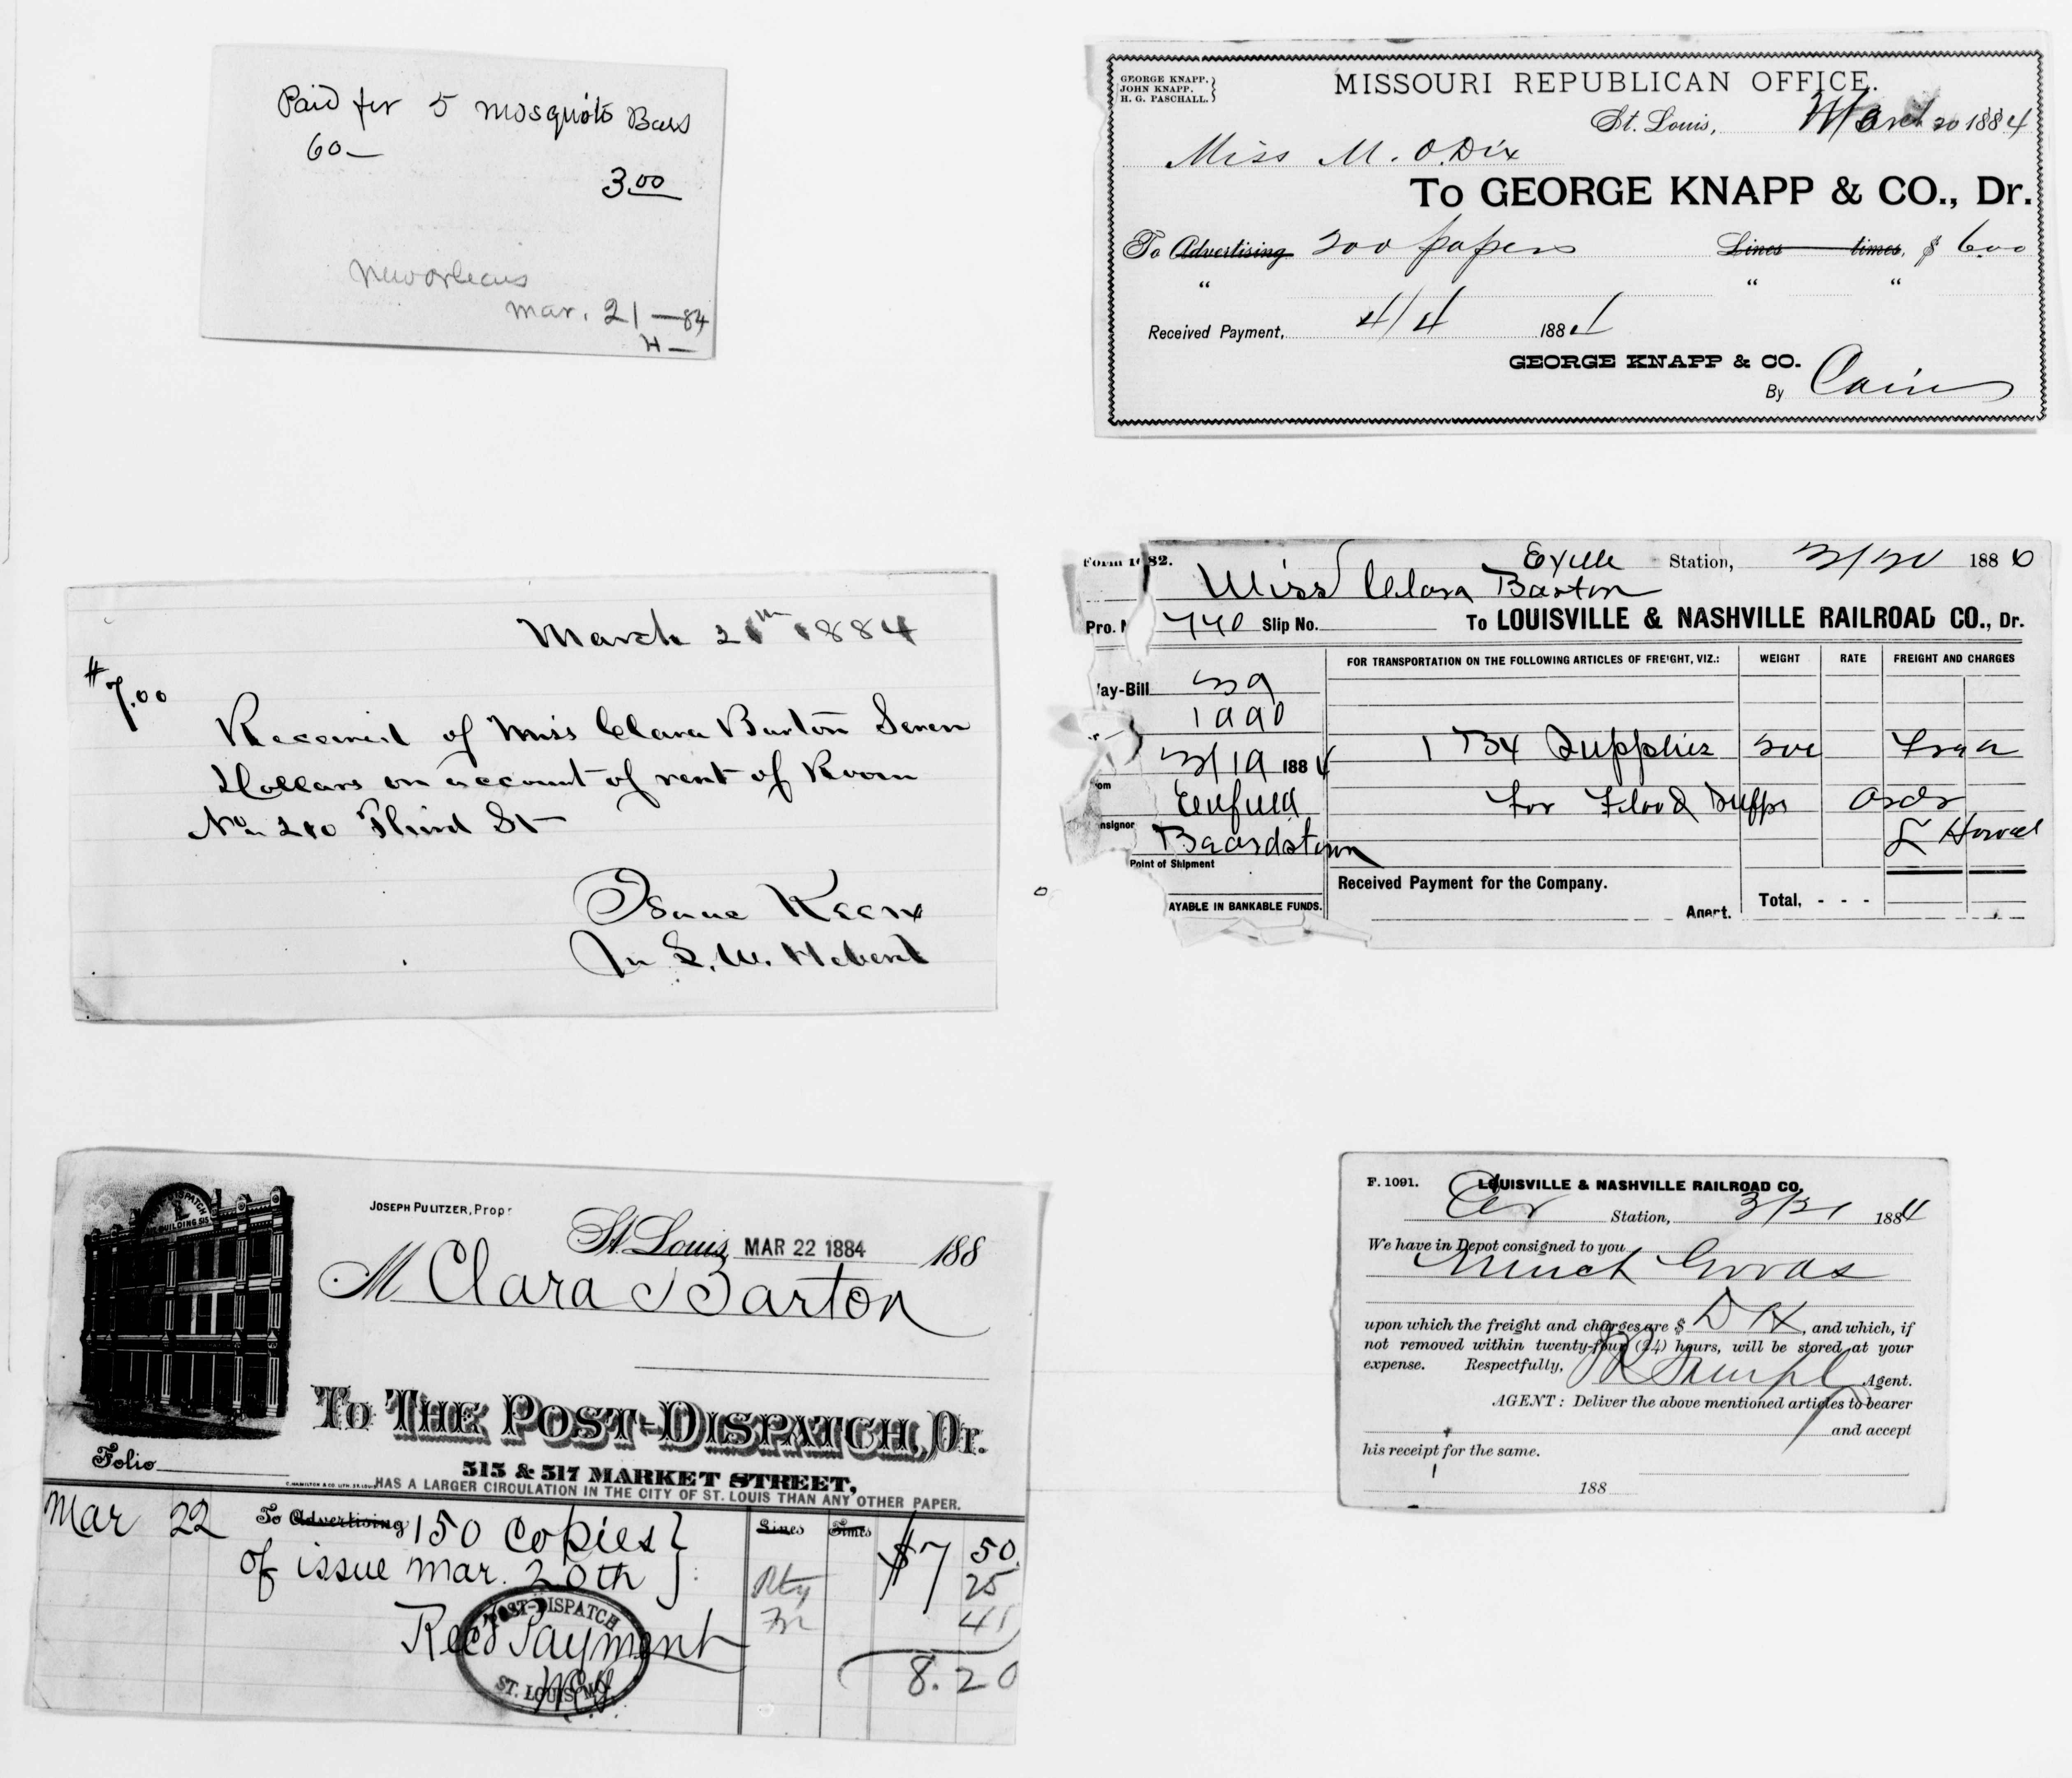 Paid for 5 mosquito Bars
60—
3.00
New Orleans
Mar. 21—84
H—
GEORGE KNAPP.
JOHN KNAPP.
H. G. PASCHALL.
MISSOURI REPUBLICAN OFFICE.
St. Louis, March 20 1884
Miss M. O. Dix
To GEORGE KNAPP & CO., Dr.
To Advertising 200 papers Lines times, $ 6.00
" " "
Received Payment, 4/4 1884
GEORGE KNAPP & CO.
By Cain
March 2 1884
$7.00
Received of Miss Clara Barton Seven
Dollars on account of rent of Room
No 210 Third St—
Isaac Keen
S. W.
Form 1 82.
Station, 188
Miss Clara Barton
Pro. 740 Slip No. To LOUISVILLE & NASHVILLE RAILROAD CO., Dr.
FOR TRANSPORTATION ON THE FOLLOWING ARTICLES OF FREIGHT, VIZ.: WEIGHT RATE FREIGHT AND CHARGES
ay-Bill 29
1990
3/19 1884 1 Supplies
om Enfield for Flood
nsignor
Beardstown
Point of Shipment
Received Payment for the Company.
AYABLE IN BANKABLE FUNDS.
Agent.
Total, - - -
JOSEPH PULITZER, Propr
St. Louis, MAR 22 1884 188
M Clara Barton
To THE POST-DISPATCH, Dr.
515 & 517 MARKET STREET,
Folio
HAS A LARGER CIRCULATION IN THE CITY OF ST. LOUIS THAN ANY OTHER PAPER.
Mar 22 To Advertising 150 Copies Lines Times $7 50
of issue Mar. 20th 25
41
Recd Payment
8.20
POST-DISPATCH
ST. LOUIS MO.
F. 1091. LOUISVILLE & NASHVILLE RAILROAD CO.
Station, 3/21 1884
We have in Depot consigned to you
Goods
upon which the freight and charges are $ D H, and which, if
not removed within twenty-four (24) hours, will be stored at your
expense. Respectfully, Agent.
AGENT: Deliver the above mentioned articles to bearer
and accept
his receipt for the same.
188